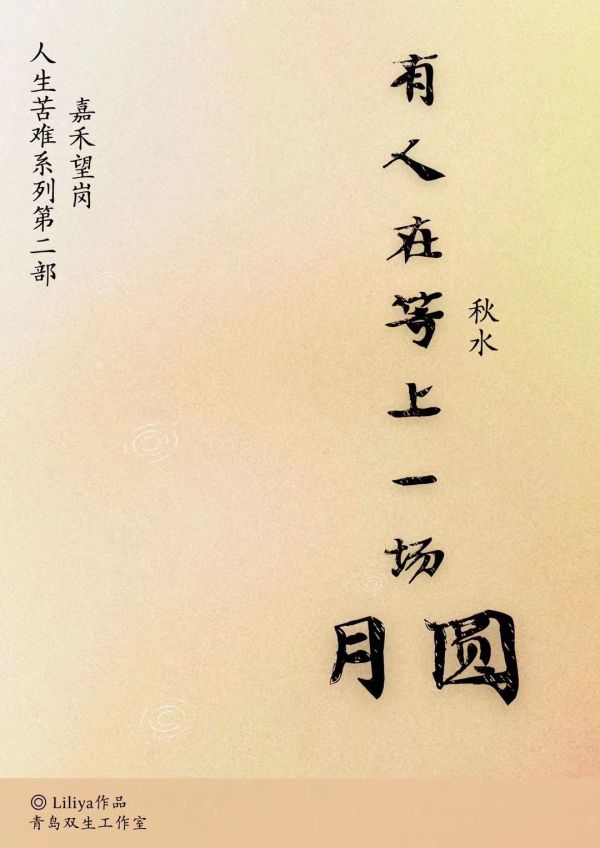 有人在等上一场
月圆
秋水
嘉禾望岗
人生苦难系列第二部
◎ Liliya作品
青岛双生工作室